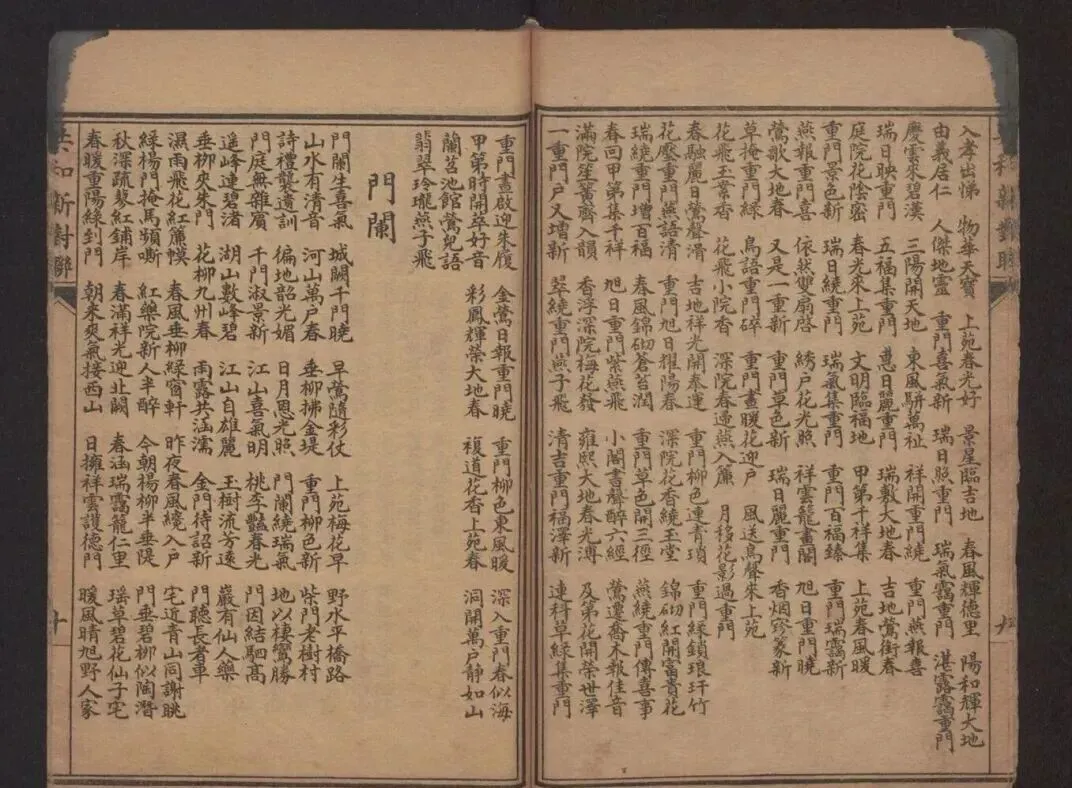 入孝出悌 物華天寶 上苑春光好 景星臨吉地 春風輝德里 陽和輝大地
由義居仁 人傑地靈 重門喜氣新 瑞日照重門 瑞氣靄重門 湛露靄重門
慶雲來碧漢 三陽開天地 東風駢萬祉 祥開重門繞 重門燕報喜
瑞日映重門 五福集重門 蕙日麗重門 瑞敷大地春 吉地鶯銜春
庭院花陰密 春光來上苑 文明臨福地 甲第千祥集 上苑春風暖
重門景色新 瑞日繞重門 瑞氣集重門 重門百福臻 重門瑞靄新
燕報重門喜 依然雙扇啓 綉户花光照 祥雲籠畫閣 旭日重門曉
鶯歌大地春 又是一重新 重門草色新 瑞日麗重門 香烟篆新
草掩重門綠 鳥語重門碎 重門晝暖花迎户 風送鳥聲來上苑
花飛玉案香 花飛小院香 深院春過燕入簾 月移花影過重門
春融廣日鶯聲滑 吉地祥光開泰運 重門柳色連青瑣 重門綠鎖琅玕竹
花壓重門燕語清 重門旭日耀陽春 深院花香繞玉堂 錦砌紅開富貴花
瑞繞重門增百福 春風錦砌蒼苔潤 重門草色開三徑 燕繞重門傳喜事
春回甲第集千祥 旭日重門紫燕飛 小閣書聲醉六經 鶯遷喬木報佳音
滿院笙簧齊入韻 香浮深院梅花發 雍熙大地春光溥 及第花開榮世澤
一重門户又增新 翠繞重門燕子飛 清吉重門福澤新 連科草綠集重門
重門晝啟迎朱履 金鶯日報重門曉 重門柳色東風暖 深入重門春似海
甲第時開萃好音 彩鳳輝榮大地春 複道花香上苑春 洞開萬戶静如山
蘭苕池館鶯兒語
翡翠玲瓏燕子飛
門闌
門闌生喜氣 城闕千門曉 早鶯隨彩仗 上苑梅花早 野水平橋路
山水有清音 河山萬户春 垂柳拂金堤 重門柳色新 柴門老樹村
詩禮襲遺訓 徧地韶光媚 日月恩光照 門闌繞瑞氣 地以棲鸞勝
門庭無雜賓 千門淑景新 江山喜氣明 桃李豔春光 門因結駟高
遥峰連碧渚 湖山數峰碧 江山自雄麗 玉樹流芳遠 巖有仙人樂
垂柳夾朱門 花柳九州春 雨露共涵濡 金門待詔新 門聽長者車
濕雨飛花紅簾幙 春風垂柳綠窗軒 昨夜春風纔入户 宅近青山同謝眺
綠楊門掩馬頻嘶 紅藥院新人半醉 今朝楊柳半垂隄 門垂碧柳似陶潛
秋深疏蓼紅鋪岸 春滿祥光迎北闕 春涵瑞靄籠仁里 瑶草碧花仙子宅
春暖重陽綠到門 朝來爽氣接西山 日擁祥雲護德門 暖風晴旭野人家
共和新對聯
十